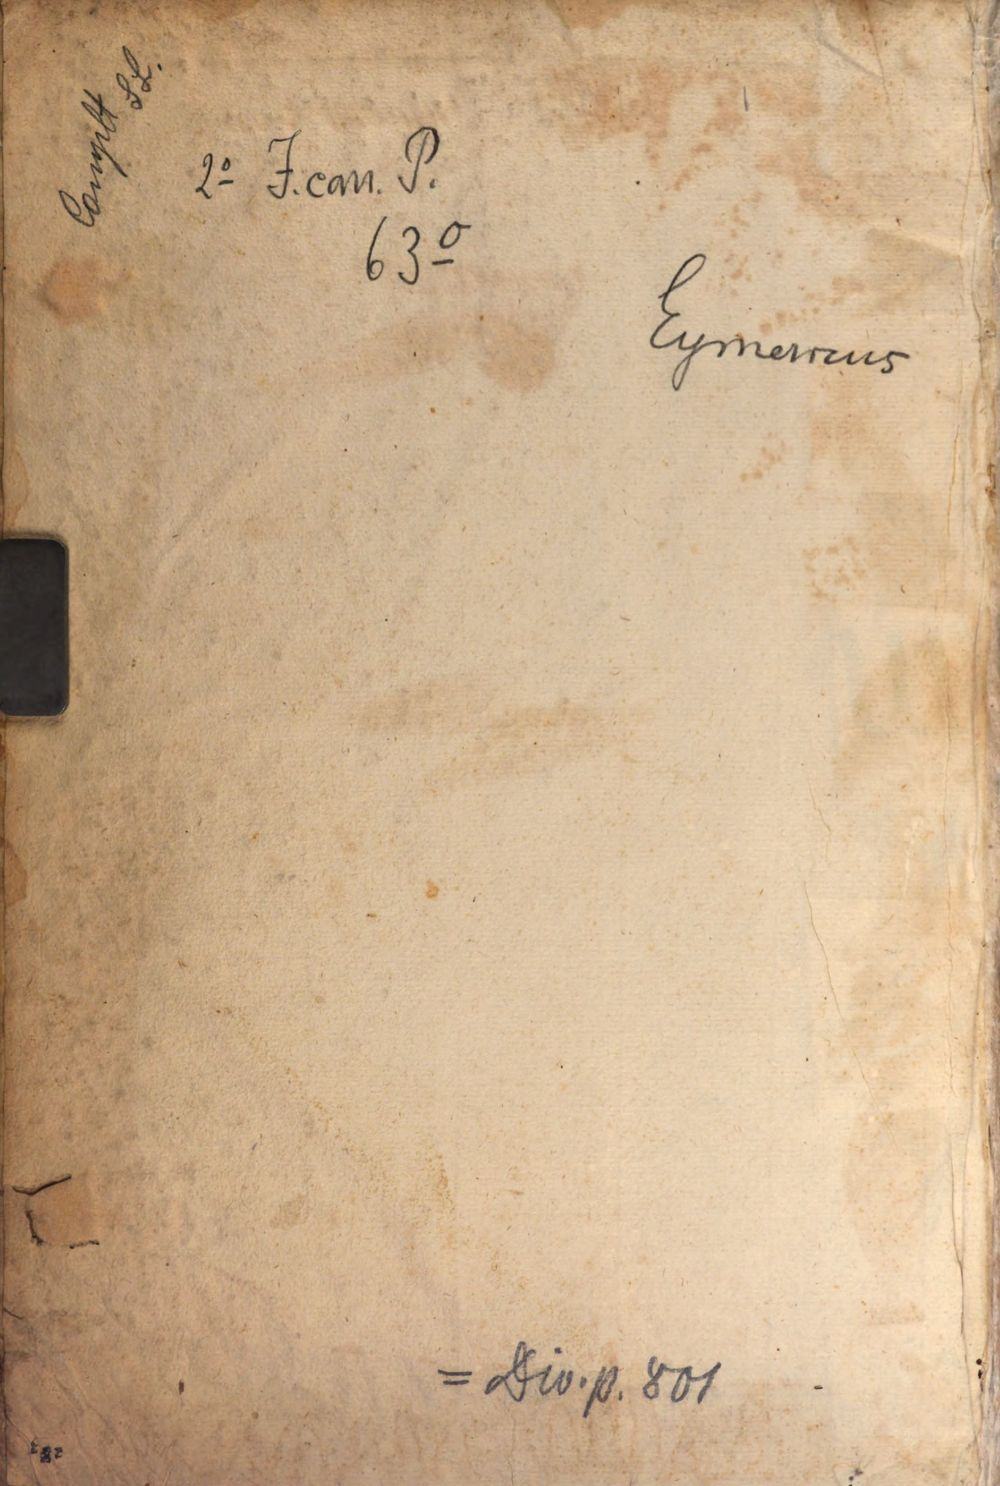 Complt
S.L.
2º J. can. P.
63º
Eymericus
= Div. p. 801